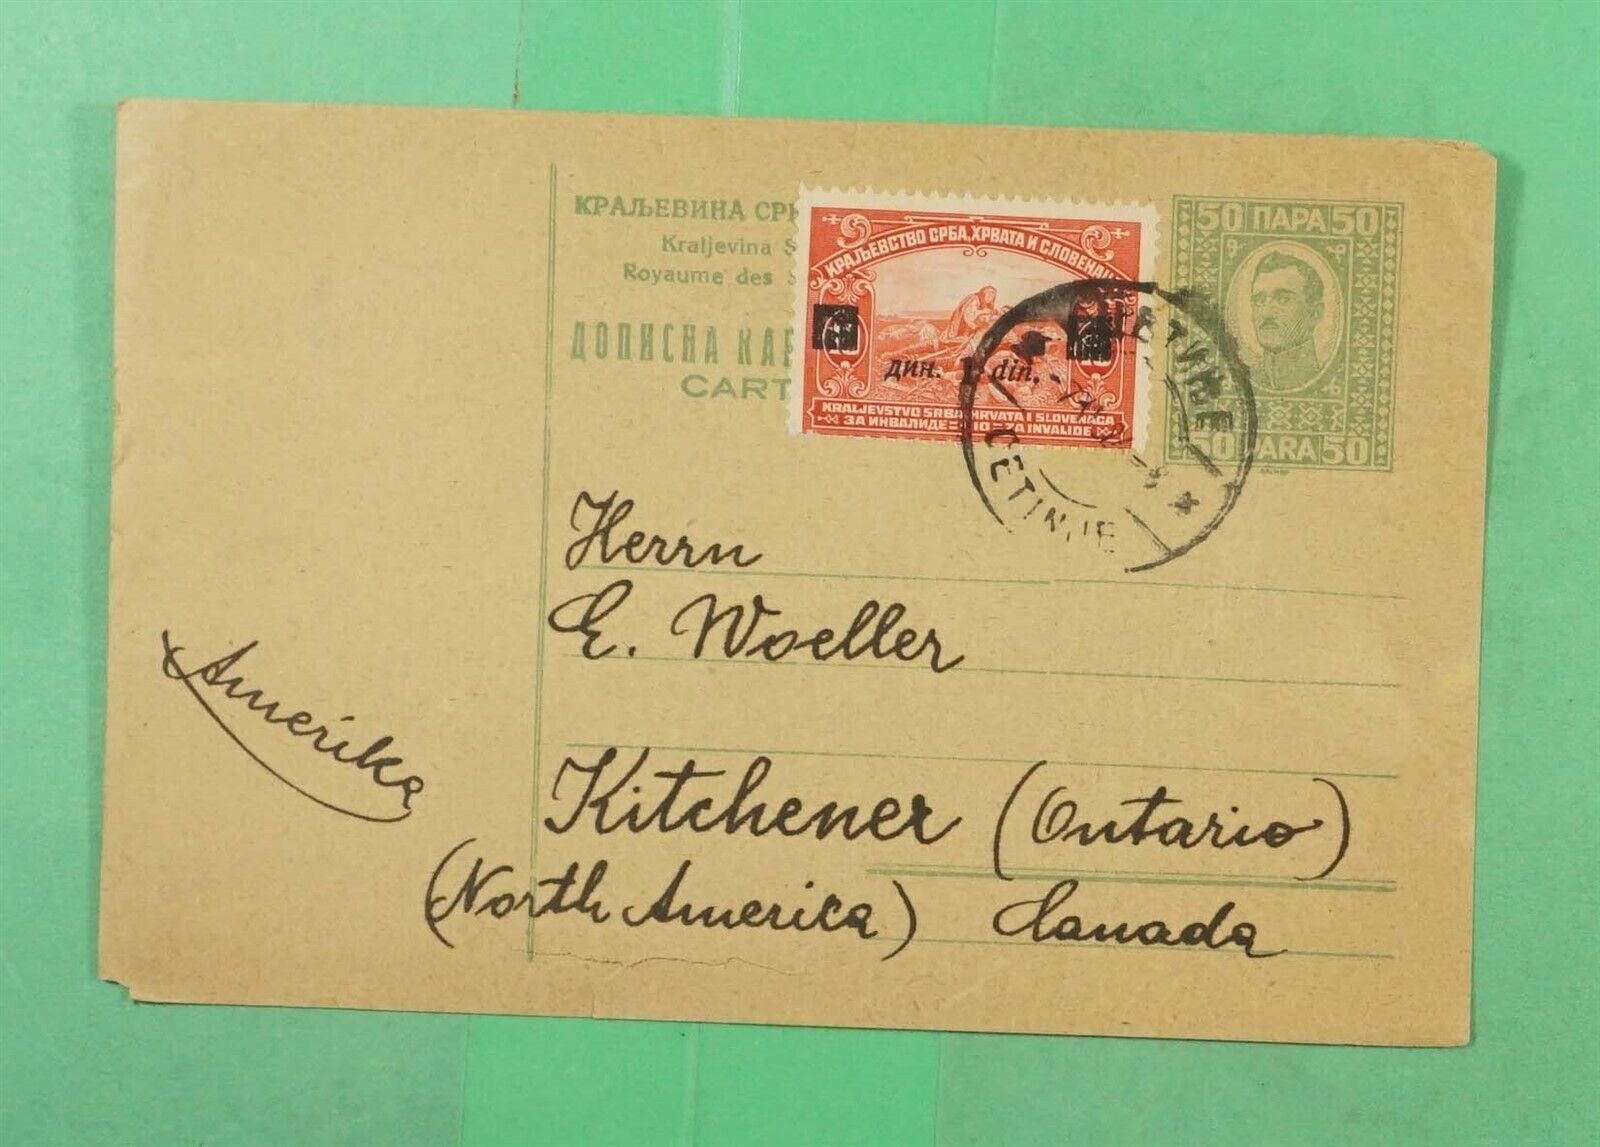 КРАЉЕВИНА
Kraljevina
Royaume des
ДОПИСНА
КРАЉЕВСТВО СРБА, ХРВАТА И СЛОВЕНАЦА
дин. 1 din.
KRALJEVSTVO SRBA HRVATA I SLOVENACA
ЗА ИНВАЛИДЕ = 10 = ZA INVALIDE
50 ПАРА 50
50 PARA 50
ЦЕТИЊЕ
CETINJE
Herrn
E. Woeller
Amerika
Kitchener (Ontario)
(North America) Canada